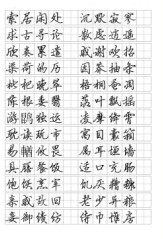 索居闲处 沉默寂寥
求古寻论 散虑逍遥
欣奏累遣 戚谢欢招
渠荷的历 园莽抽条
枇杷晚翠 梧桐蚤凋
陈根委翳 落叶飘摇
游鹍独运 凌摩绛霄
耽读玩市 寓目囊箱
易輶攸畏 属耳垣墙
具膳餐饭 适口充肠
饱饫烹宰 饥厌糟糠
亲戚故旧 老少异粮
妾御绩纺 侍巾帷房